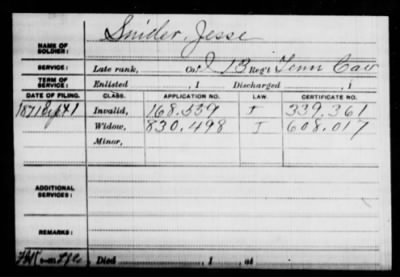 Snider, Jesse
NAME OF SOLDIER:
SERVICE: Late rank, Co. I 13 Reg't Tenn Cav
TERM OF SERVICE: Enlisted , 1 Discharged , 1
DATE OF FILING. CLASS. APPLICATION NO. LAW. CERTIFICATE NO.
1871 Sept 1 Invalid, 168.539 I 339.361
Widow, 830.498 J 608.017
Minor,
ADDITIONAL SERVICES:
REMARKS:
Died , 1 , at